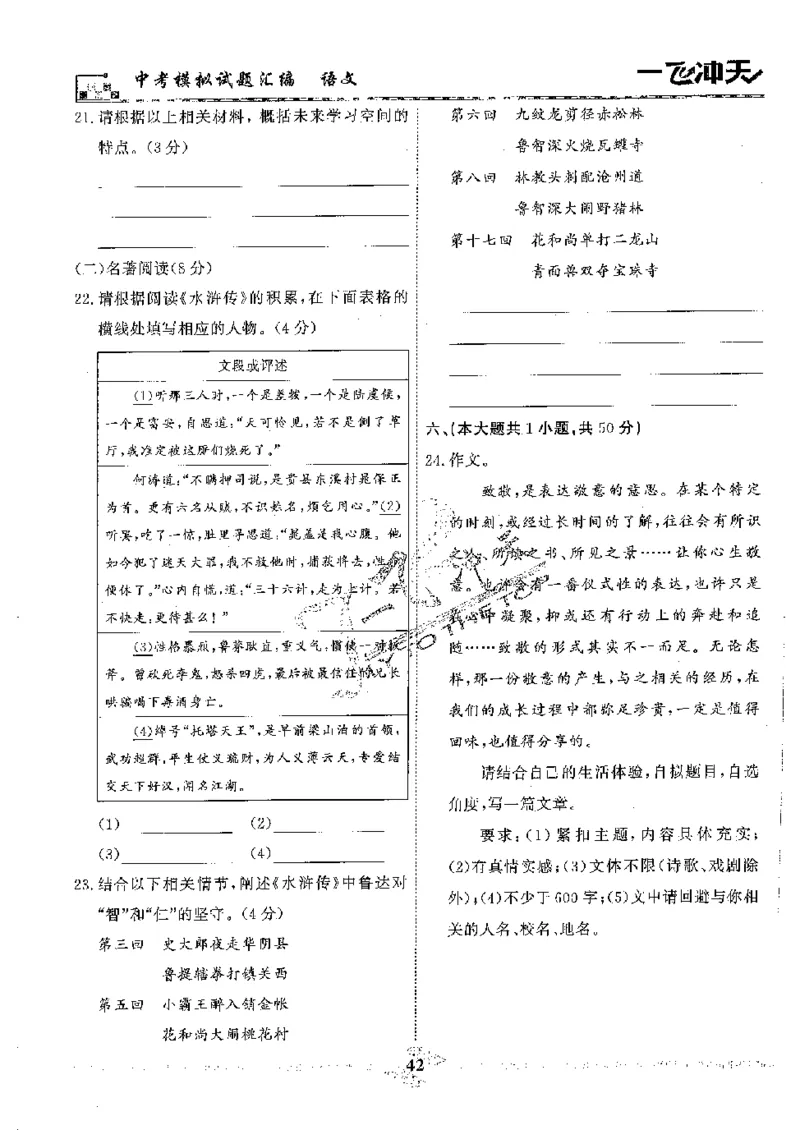 中考模拟试题汇编 语文
一飞冲天
21.请根据以上相关材料，概括未来学习空间的
特点。(3分)
(二)名著阅读(8分)
22.请根据阅读《水浒传》的积累，在下面表格的
横线处填写相应的人物。(4分)
文段或评述
(1)听那三人时，一个是差拨，一个是陆虞候，
一个是富安，自思道：“天可怜见，若不是倒了草
厅，我准定被这厮们烧死了。”
何涛道：“不瞒押司说，是贵县东溪村晁保正
为首。更有六名从贼，不识姓名，烦乞用心。”(2)
听罢，吃了一惊，肚里寻思道：“晁盖是我心腹。他
如今犯了迷天大罪，我不救他时，捕获将去，性命
便休了。”心内自慌，道：“三十六计，走为上计。若
不快走，更待甚么！”
(3)性格暴躁，鲁莽耿直，重义气，惯使一对板
斧。曾砍死李鬼，怒杀四虎，最后被最信任的兄长
哄骗喝下毒酒身亡。
(4)绰号“托塔天王”，是早前梁山泊的首领，
武功超群，平生仗义疏财，为人义薄云天，专爱结
交天下好汉，闻名江湖。
(1) (2)
(3) (4)
23.结合以下相关情节，阐述《水浒传》中鲁达对
“智”和“仁”的坚守。(4分)
第三回 史大郎夜走华阴县
鲁提辖拳打镇关西
第五回 小霸王醉入销金帐
花和尚大闹桃花村
第六回 九纹龙剪径赤松林
鲁智深火烧瓦罐寺
第八回 林教头刺配沧州道
鲁智深大闹野猪林
第十七回 花和尚单打二龙山
青面兽双夺宝珠寺
六、(本大题共1小题，共50分)
24.作文。
致敬，是表达敬意的意思。在某个特定
的时刻，或经过长时间的了解，往往会有所识
之人、所读之书、所见之景……让你心生敬
意。也许会有一番仪式性的表达，也许只是
在心中凝聚，抑或还有行动上的奔赴和追
随……致敬的形式其实不一而足。无论怎
样，那一份敬意的产生，与之相关的经历，在
我们的成长过程中都弥足珍贵，一定是值得
回味，也值得分享的。
请结合自己的生活体验，自拟题目，自选
角度，写一篇文章。
要求：(1)紧扣主题，内容具体充实；
(2)有真情实感；(3)文体不限(诗歌、戏剧除
外)；(4)不少于600字；(5)文中请回避与你相
关的人名、校名、地名。
42